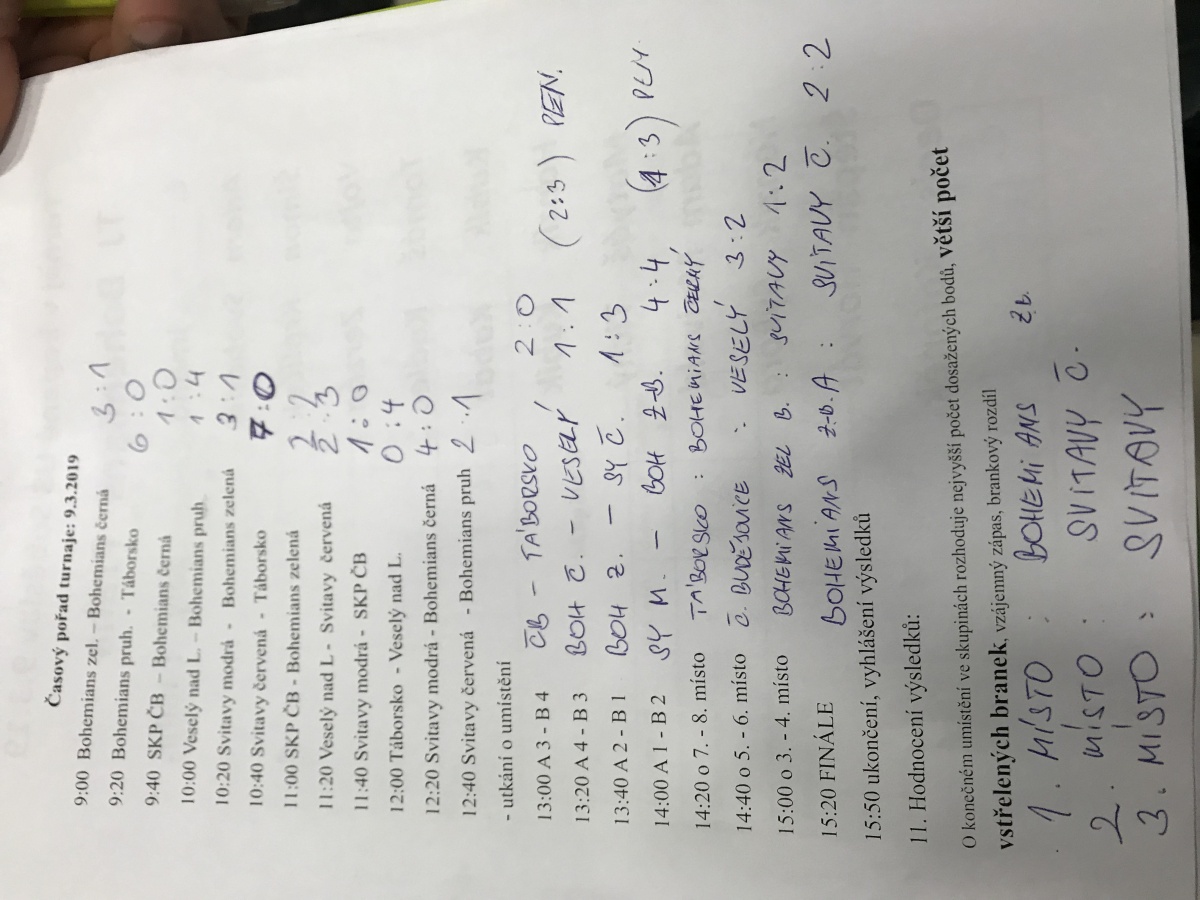 Časový pořad turnaje: 9.3.2019
9:00 Bohemians zel. – Bohemians černá 3 : 1
9:20 Bohemians pruh. - Táborsko 6 : 0
9:40 SKP ČB – Bohemians černá 1 : 0
10:00 Veselý nad L. – Bohemians pruh. 1 : 4
10:20 Svitavy modrá - Bohemians zelená 3 : 1
10:40 Svitavy červená - Táborsko 7 : 0
11:00 SKP ČB - Bohemians zelená 2 : 2
11:20 Veselý nad L - Svitavy červená 2 : 3
11:40 Svitavy modrá - SKP ČB 1 : 0
12:00 Táborsko - Veselý nad L. 0 : 4
12:20 Svitavy modrá - Bohemians černá 4 : 0
12:40 Svitavy červená - Bohemians pruh 2 : 1
- utkání o umístění
13:00 A 3 - B 4 ČB – TÁBORSKO 2 : 0
13:20 A 4 - B 3 BOH Č. – VESELÝ 1 : 1 (2 : 3) PEN.
13:40 A 2 - B 1 BOH Z. – SY Č. 1 : 3
14:00 A 1 - B 2 SY M. – BOH Z-B. 4 : 4 (4 : 3) PEN.
14:20 o 7. - 8. místo TÁBORSKO : BOHEMIANS ČERNÝ
14:40 o 5. - 6. místo Č. BUDĚJOVICE : VESELÝ 3 : 2
15:00 o 3. - 4. místo BOHEMIANS ZEL B. : SVITAVY 1 : 2
15:20 FINÁLE BOHEMIANS Z-B. A : SVITAVY Č. 2 : 2
15:50 ukončení, vyhlášení výsledků
11. Hodnocení výsledků:
O konečném umístění ve skupinách rozhoduje nejvyšší počet dosažených bodů, větší počet
vstřelených branek, vzájemný zápas, brankový rozdíl
1. MÍSTO : BOHEMIANS Z.b.
2. MÍSTO : SVITAVY Č.
3. MÍSTO : SVITAVY